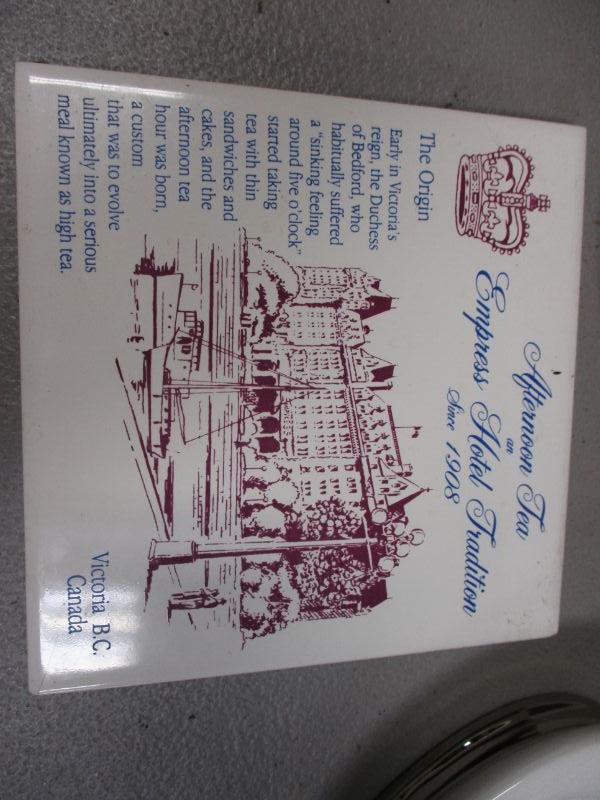 Afternoon Tea
an
Empress Hotel Tradition
Since 1908
The Origin
Early in Victoria's
reign, the Duchess
of Bedford, who
habitually suffered
a "sinking feeling
around five o'clock"
started taking
tea with thin
sandwiches and
cakes, and the
afternoon tea
hour was born,
a custom
that was to evolve
ultimately into a serious
meal known as high tea.
EMPRESS
Victoria, B.C.
Canada